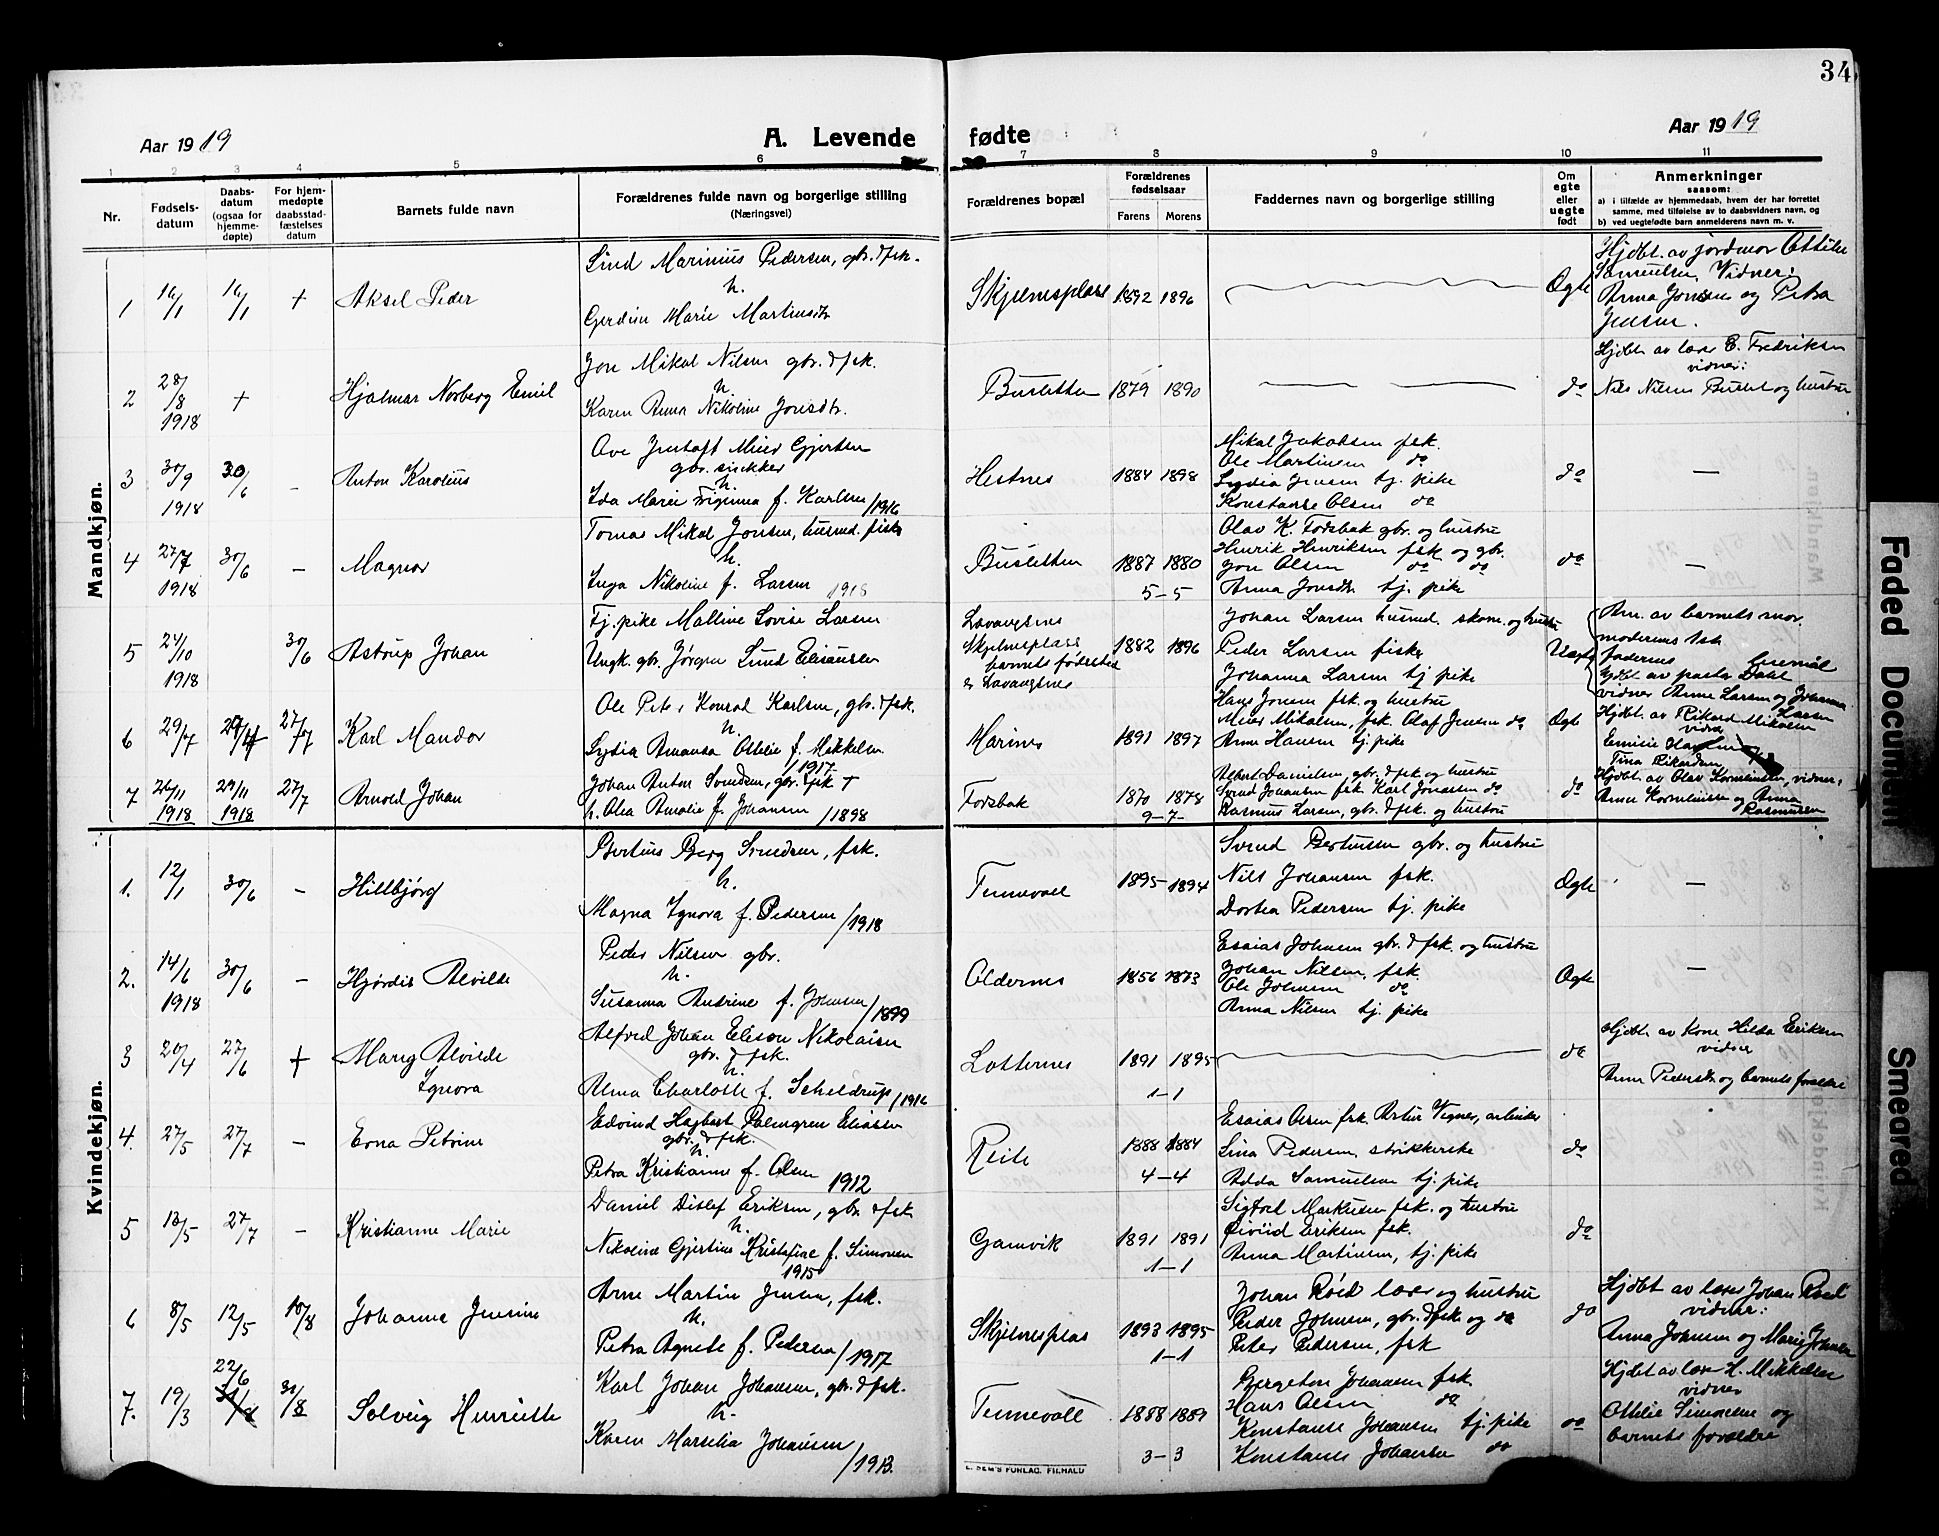 34
Aar 1919
A. Levende
fødte
Aar 1919
1 2 3 4 5 6 7 8 9 10 11
Nr.
Fødsels-
datum
Daabs-
datum
(ogsaa for
hjemme-
døpte)
For hjem-
medøpte
daabsstad-
fæstelses
datum
Barnets fulde navn
Forældrenes fulde navn og borgerlige stilling
(Næringsvei)
Forældrenes bopæl
Forældrenes
fødselsaar
Farens Morens
Faddernes navn og borgerlige stilling
Om
egte
eller
uegte
født
Anmerkninger
saasom:
a) i tilfælde av hjemmedaab, hvem der har forrettet
samme, med tilføielse av to daabsvidners navn, og
b) ved uegtefødte barn anmelderens navn m. v.
Mandkjøn.
1 16/1 16/1 + Aksel Peder
Lind Marinius Pedersen, gbr. & fsk.
h.
Gerdine Marie Martinsdtr
Skjelnesplass 1892 1896
Ægte
Hjdbt. av jordmor Ottilie
Samuelsen Vidner:
Anna Jensen og Petra
Jensen.
2 28/8 1918 + Hjalmar Norberg Emil
Jon Mikal Nilsen gbr. & fsk.
h.
Karen Anna Nikoline Jonsdtr.
Burletten 1879 1890
do
Hjdbt. av lærer E. Fredriksen
vidner:
Nils Nilsen Burlet og hustru
3 30/9 1918 30/6 – Anton Karolius
Ove Jentoft Meier Gjertsen
gbr. snekker
h.
Ida Marie f. Karlsen /1916
Hestnes 1884 1898
Mikal Jakobsen fsk.
Ole Martinsen do
Lydia Jensen tj. pike
Konstanse Olsen do
do
–
4 27/7 1918 30/6 – Magnor
Tomas Mikal Jonsen, husmd. fisker
h.
Inga Nikoline f. Larsen 1918
Burletten 1887 1880
5–5
Olav K. Fossbak gbr. og hustru
Henrik Henriksen fsk og gbr.
Jon Olsen do do
Anna Jonsdtr tj. pike
do
–
5 24/10 1918 30/6 Astrup Johan
Tj. pike Malline Lovise Larsen
Ungk. gbr. Jørgen Lund Eliassen
Lavangsnes
Skjelnesplass
barnets fødested
er Lavangsnes
1882 1896
Johan Larsen husmd. skom. og hustru
Peder Larsen fisker
Johanna Larsen tj pike
Uægte
Anm. av barnets mor.
moderens 1ste
faderens leiermål
Hjdbt av pastor Dahl
vidner Anna Larsen og Johanna
Larsen
6 29/7 27/7 Karl Mandor
Ole Peter Konrad Karlsen, gbr. & fsk.
h.
Lydia Amanda Ottelie f. Mikkelsen
/1917
Marines 1891 1897
Hans Jensen fsk. og hustru
Meier Mikalsen, fsk. Olaf Jensen do
Anna Hansen tj. pike
Ægte
Hjdbt. av Rikard Mikalsen
vidner
Emilie
Tina Rikardsen
7 26/11 1918 29/11 1918 27/7 Arnold Johan
Johan Anton Svendsen, gbr. & fsk +
h. Olea Amalie f. Johansen /1898
Fossbak 1870 1878
9–7
Albert Danielsen, gbr. & fsk og hustru
Svend Johansen fsk. Karl Jonassen do
Rasmus Larsen, gbr. & fsk. og hustru
do
Hjdbt. av Olav Korneliussen, vidner:
Anna Korneliussen og Anna
Rasmussen
Kvindekjøn.
1. 12/1 30/6 – Hillbjørg
Bertius Berg Svendsen, fsk.
h.
Magna Ignora f. Pedersen /1918
Tennevoll 1895 1894
Svend Bertiussen gbr. og hustru
Nils Johansen fsk.
Dortea Pedersen tj. pike
Ægte
–
2. 14/6 1918 30/6 – Hjørdis Alvilde
Peder Nilsen gbr.
h.
Susanna Andrine f. Johnsen /1899
Oldernes 1856 1873
Esaias Johnsen gbr. & fsk. og hustru
Johan Nilsen, fsk.
Ole Johnsen do
Anna Nilsen tj. pike
Ægte
–
3 20/4 27/6 + Mary Alvilde
Ignora
Alfred Johan Elison Nikolaisen
gbr. & fsk.
h.
Alma Charlotte f. Scheldrup /1916
Lotternes 1891 1895
1–1
do
Hjdbt. av Kone Hilda Eriksen
vidner
Anna Pedersen og barnets forældre
4. 27/5 27/7 – Erna Petrine
Edvind Hagbart Palmgren Eliassen
gbr. & fsk.
h.
Petra Kristianne f. Olsen 1912
Reite 1888 1884
4–4
Esaias Olsen fsk. Artur Vegner, arbeider
Lina Pedersen strikkerske
Adda Samuelsen tj. pike
do
5 13/5 27/7 – Kristianne Marie
Daniel Ditlef Eriksen, gbr. & fsk
h.
Nikoline Gjertine Kristofine f. Simonsen
1915
Gamvik 1891 1891
1–1
Sigfred Markussen fsk. og hustru
Eivind Eriksen fsk.
Anna Martinsen, tj. pike
do
6 8/5 12/5 10/8 Johanna Jensine
Arne Martin Jensen, fsk.
h.
Petra Agnete f. Pedersen /1917
Skjelnesplas 1893 1895
1–1
Johan Røed lærer og hustru
Peder Johnsen, gbr. & fsk og do
Peter Pedersen, fsk
do
Hjdbt av lærer Johan Røed
vidner:
Anna Johnsen og Marie Johnsen
7. 19/3 22/6 31/8 Solveig Henriette
Karl Johan Johansen, gbr. & fsk.
h.
Karen Marselia Johansen /1913.
Tennevoll 1888 1889
3–3
Bergeton Johansen fsk
Hans Olsen do
Konstanse Johansen tj. pike
Konstanse Johansen do
do
Hjdbt av lærer H. Mikkelsen
vidner
Ottelie Simonsen og
barnets forældre
E. SEM'S FORLAG, FR.HALD
Faded Document
Smeared